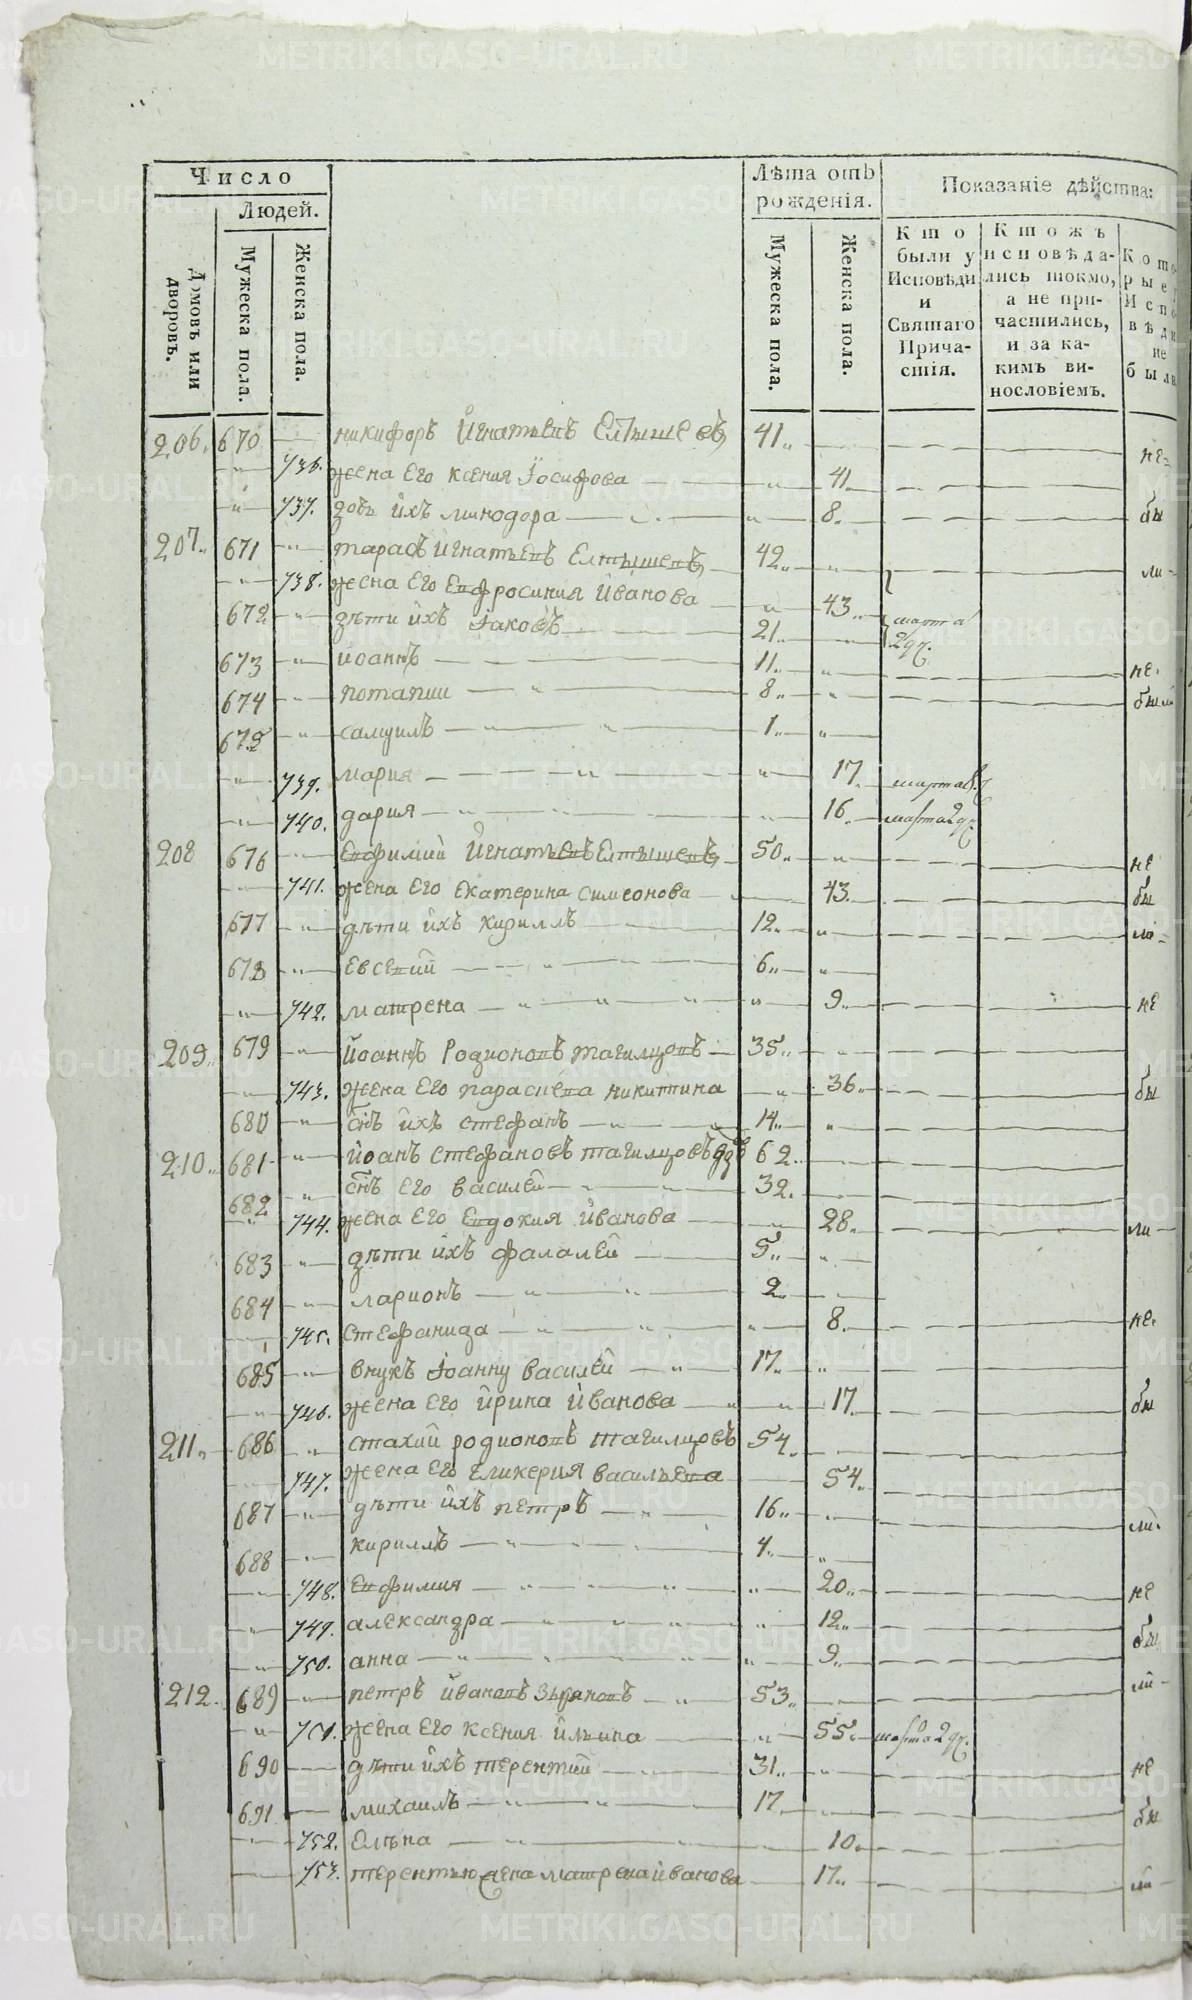 Число
Людей.
Домовъ или дворовъ.
Мужеска пола.
Женска пола.
Лѣта отъ рожденія.
Мужеска пола.
Женска пола.
Показаніе дѣйства:
Кто были у Исповѣди и Святаго Причастія.
Ктожъ исповѣдались токмо, а не причастились, и за какимъ винословіемъ.
Которые Исповѣди не были
206. 670 никифоръ Игнатьевъ Елтышевъ 41 не
736. жена Его Ксения Иосифова 41
737. дочь ихъ минодора 8 бы
207. 671 тарасъ Игнатьевъ Елтышевъ 42 ли
738. жена Его Евфросиния Иванова 43
672 дѣти ихъ Iаковъ 21 марта 2 д.
673 иоаннъ 11 не
674 потапии 8 были
675 самуилъ 1
739. мария 17 марта
740. дария 16 марта 2 д.
208 676 Евфимий Игнатьевъ Елтышевъ 50 не
741. жена Его Екатерина симеонова 43 бы
677 дѣти ихъ кириллъ 12 ли
678 Евсевий 6
742. матрена 9 не
209. 679 Иоаннъ Родионовъ тагилцовъ 35
743. жена Его параскева никитина 36 бы
680 снъ ихъ стефанъ 14
210. 681 Иоанъ стефановъ тагилцовъ вдвъ 62
682 снъ Его василей 32
744. жена Его Евдокия Иванова 28 ли
683 дѣти ихъ фалалей 5
684 ларионъ 2
745. стефанида 8 не
685 внукъ Iоанну василей 17
746. жена Его Ирина Иванова 17 бы
211. 686 стахий родионовъ тагилцовъ 54
747. жена Его Гликерия васильева 54
687 дѣти ихъ петръ 16 ли
688 кириллъ 4
748. Евфимия 20 не
749. александра 12 бы
750. анна 9
212. 689 петръ Ивановъ Зыряновъ 53 ли
751. жена Его Ксения Ильина 55 марта 2 д.
690 дѣти ихъ терентий 31 не
691 михаилъ 17 бы
752. Елѣна 10
753. терентью жена матрена иванова 17 ли
METRIKI.GASO-URAL.RU